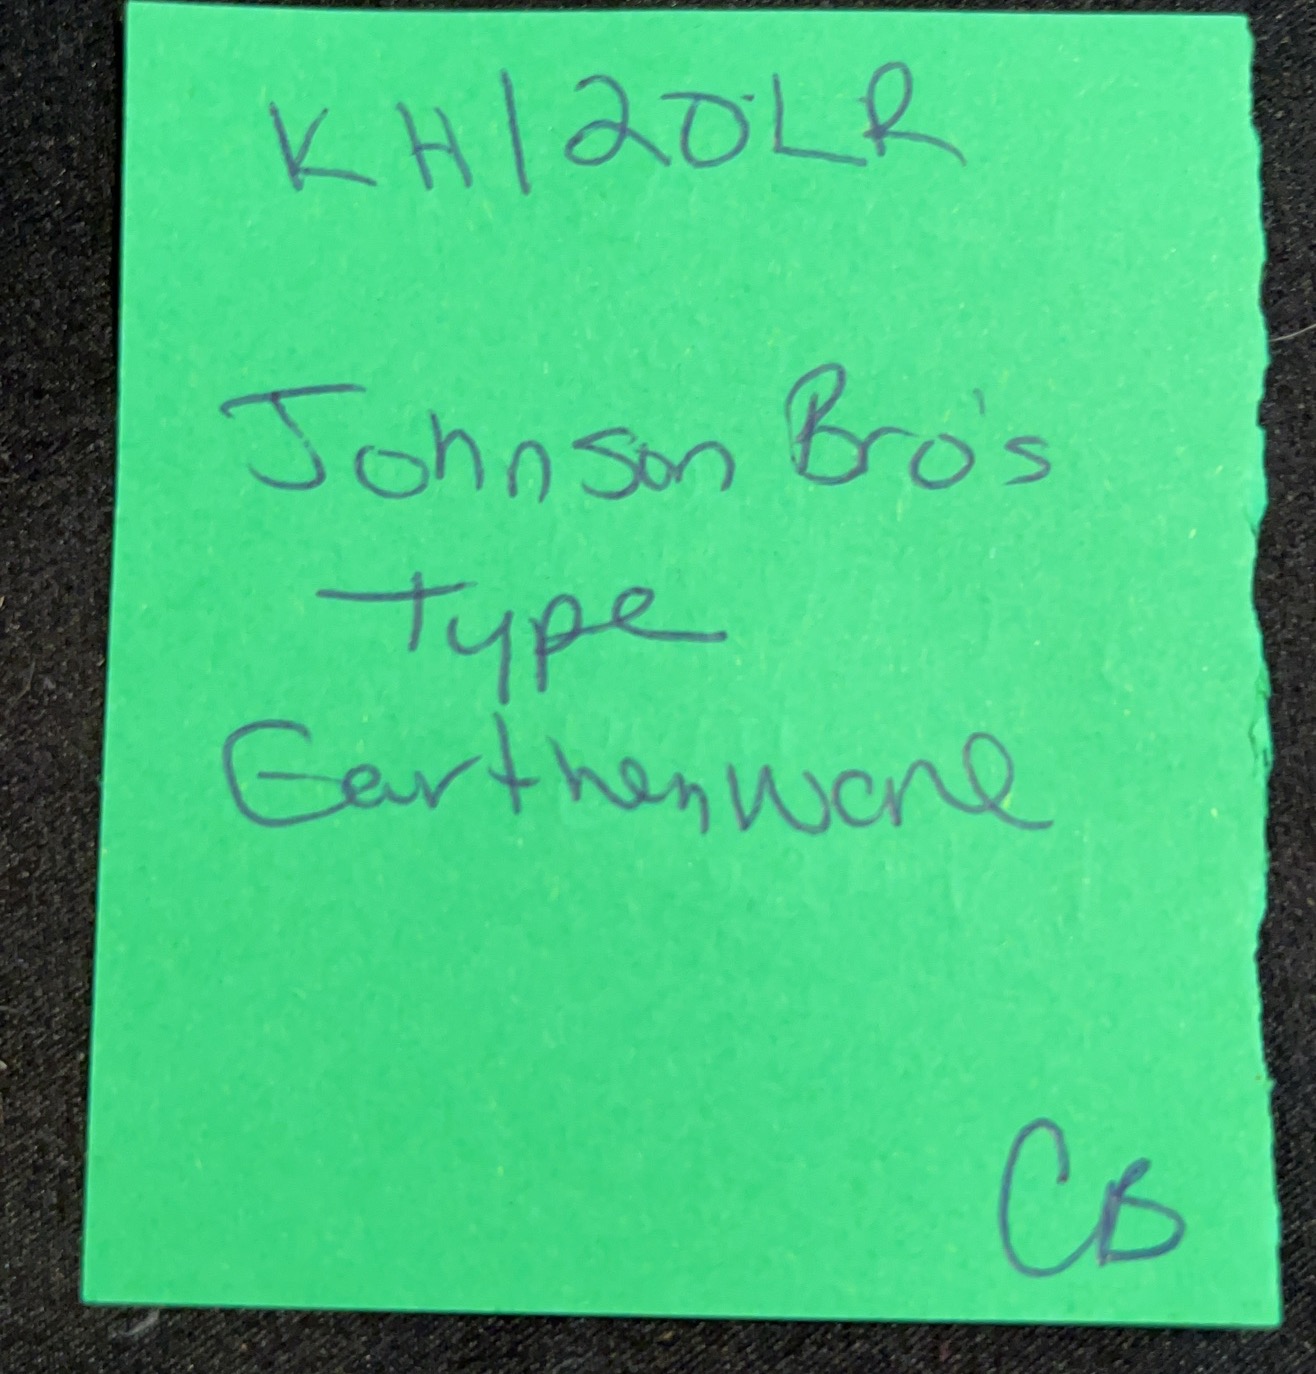 KH120LR
Johnson Bro's
Type
Earthenware
CB